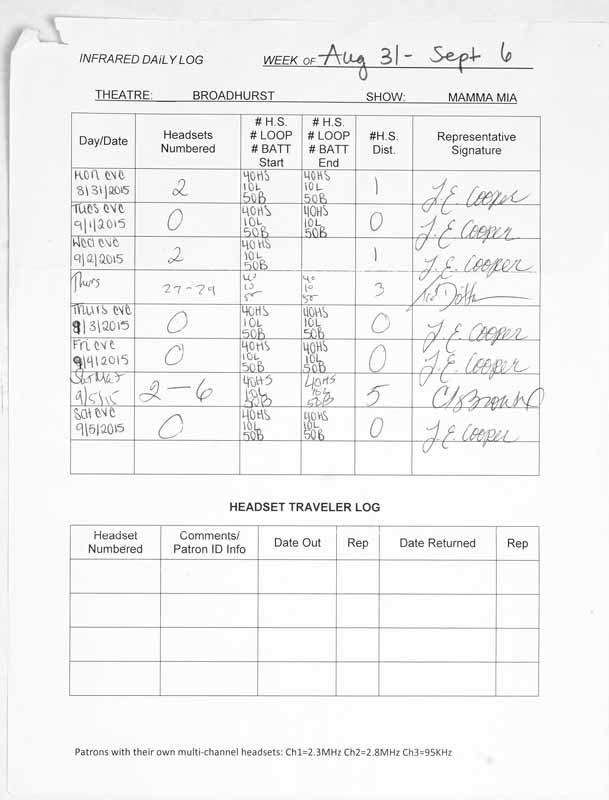 INFRARED DAILY LOG WEEK OF Aug 31 - Sept 6
THEATRE: BROADHURST SHOW: MAMMA MIA
Day/Date
Headsets
Numbered
# H.S.
# LOOP
# BATT
Start
# H.S.
# LOOP
# BATT
End
#H.S.
Dist.
Representative
Signature
Mon eve
8/31/2015
2
40HS
10L
50B
40HS
10L
50B
1
J.E. Cooper
Tues eve
9/1/2015
0
40HS
10L
50B
40HS
10L
50B
0
J.E. Cooper
Wed eve
9/2/2015
2
40HS
10L
50B
1
J.E. Cooper
Thurs
27-29
40
10
50
40
10
50
3
Thurs eve
9/3/2015
0
40HS
10L
50B
40HS
10L
50B
0
J.E. Cooper
Fri eve
9/4/2015
0
40HS
10L
50B
40HS
10L
50B
0
J.E. Cooper
Sat Mat
9/5/15
2-6
40HS
10L
50B
40HS
10L
50B
5
Sat eve
9/5/2015
0
40HS
10L
50B
40HS
10L
50B
0
J.E. Cooper
HEADSET TRAVELER LOG
Headset
Numbered
Comments/
Patron ID Info
Date Out
Rep
Date Returned
Rep
Patrons with their own multi-channel headsets: Ch1=2.3MHz Ch2=2.8MHz Ch3=95KHz